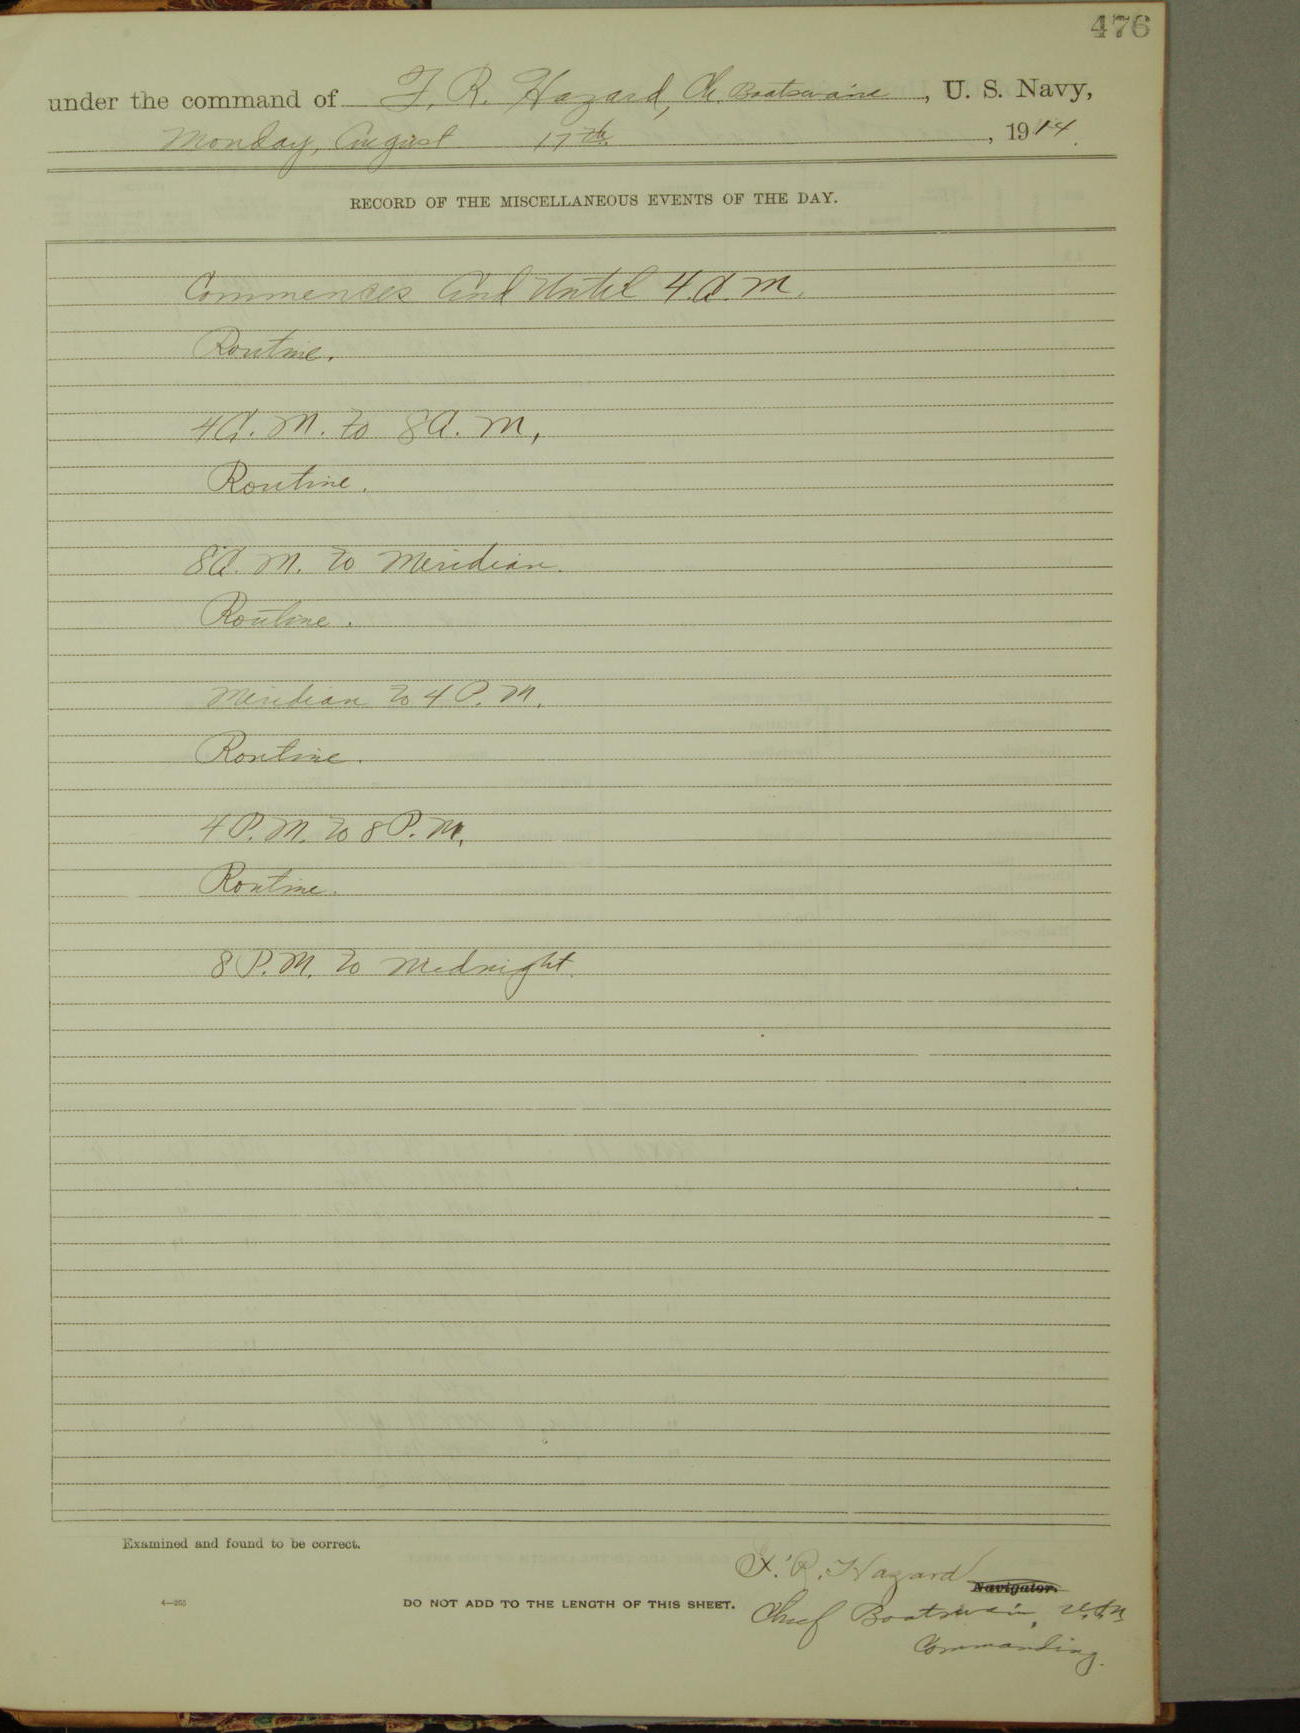 476
under the command of F. R. Hazard, Ch. Boatswain, U. S. Navy,
Monday, August 17th, 1914.
RECORD OF THE MISCELLANEOUS EVENTS OF THE DAY.
Commences And Until 4 A.M.
Routine.
4 A.M. to 8 A.M.
Routine.
8 A.M. to Meridian.
Routine.
Meridian to 4 P.M.
Routine.
4 P.M. to 8 P.M.
Routine.
8 P.M. to Midnight.
Examined and found to be correct.
F. R. Hazard
Navigator.
4—265
DO NOT ADD TO THE LENGTH OF THIS SHEET.
Chief Boatswain, U.S.N.
Commanding.